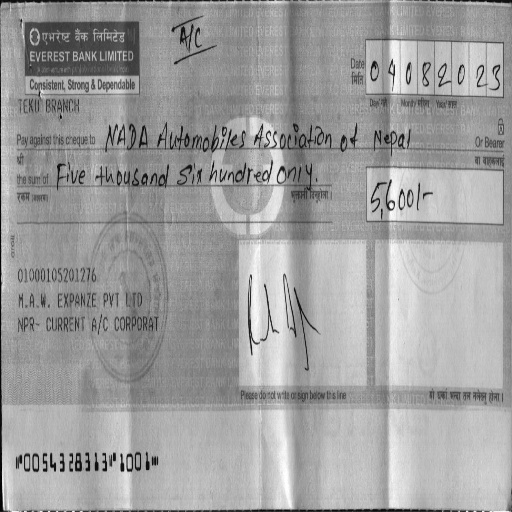 A/C
एभरेष्ट बैंक लिमिटेड
EVEREST BANK LIMITED
Consistent, Strong & Dependable
TEKU BRANCH
Date
मिति
04082023
Day/गते Month/महिना Year/साल
Pay against this cheque to NADA Automobiles Association of Nepal Or Bearer
श्री
वा वाहकलाई
the sum of Five thousand Six hundred only.
रकम (अक्षरमा)
भुक्तानी दिनुहोला।
5,600/-
01000105201276
M.A.W. EXPANZE PVT LTD
NPR- CURRENT A/C CORPORAT
Please do not write or sign below this line
यो रेखा भन्दा तल नलेख्नु होला।
⑈0054328313⑈1001⑈